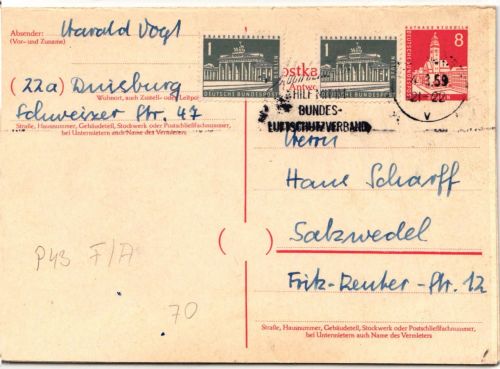 Absender: Harald Vogl
(Vor- und Zuname)
(22a) Duisburg
Wohnort, auch Zustell- oder Leitpos
Schweizer Str. 47
Straße, Hausnummer, Gebäudeteil, Stockwerk oder Postschließfachnummer,
bei Untermietern auch Name des Vermieters
1
DEUTSCHE BUNDESPOST
1
DEUTSCHE BUNDESPOST
8
ostka
Antwo
HILF
BUNDES-
LUFTSCHUTZVERBAND
59
21 - 22
V
Herrn
Hans Scharff
Salzwedel
Fritz-Reuter-Str. 12
Straße, Hausnummer, Gebäudeteil, Stockwerk oder Postschließfachnummer,
bei Untermietern auch Name des Vermieters
P43 F/A
70